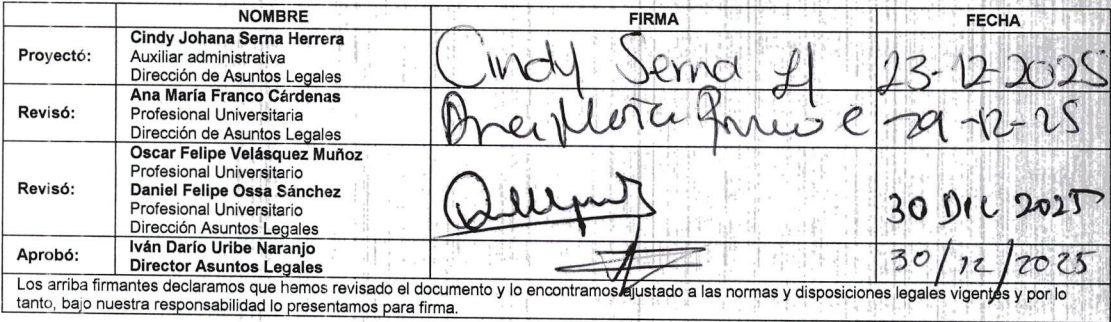 NOMBRE FIRMA FECHA
Proyectó: Cindy Johana Serna Herrera
Auxiliar administrativa
Dirección de Asuntos Legales
Cindy Serna H 23-12-2025
Revisó: Ana María Franco Cárdenas
Profesional Universitaria
Dirección de Asuntos Legales
Ana María Franco C 29-12-25
Revisó: Oscar Felipe Velásquez Muñoz
Profesional Universitario
Daniel Felipe Ossa Sánchez
Profesional Universitario
Dirección Asuntos Legales
30 DIC 2025
Aprobó: Iván Darío Uribe Naranjo
Director Asuntos Legales
30/12/2025
Los arriba firmantes declaramos que hemos revisado el documento y lo encontramos ajustado a las normas y disposiciones legales vigentes y por lo
tanto, bajo nuestra responsabilidad lo presentamos para firma.